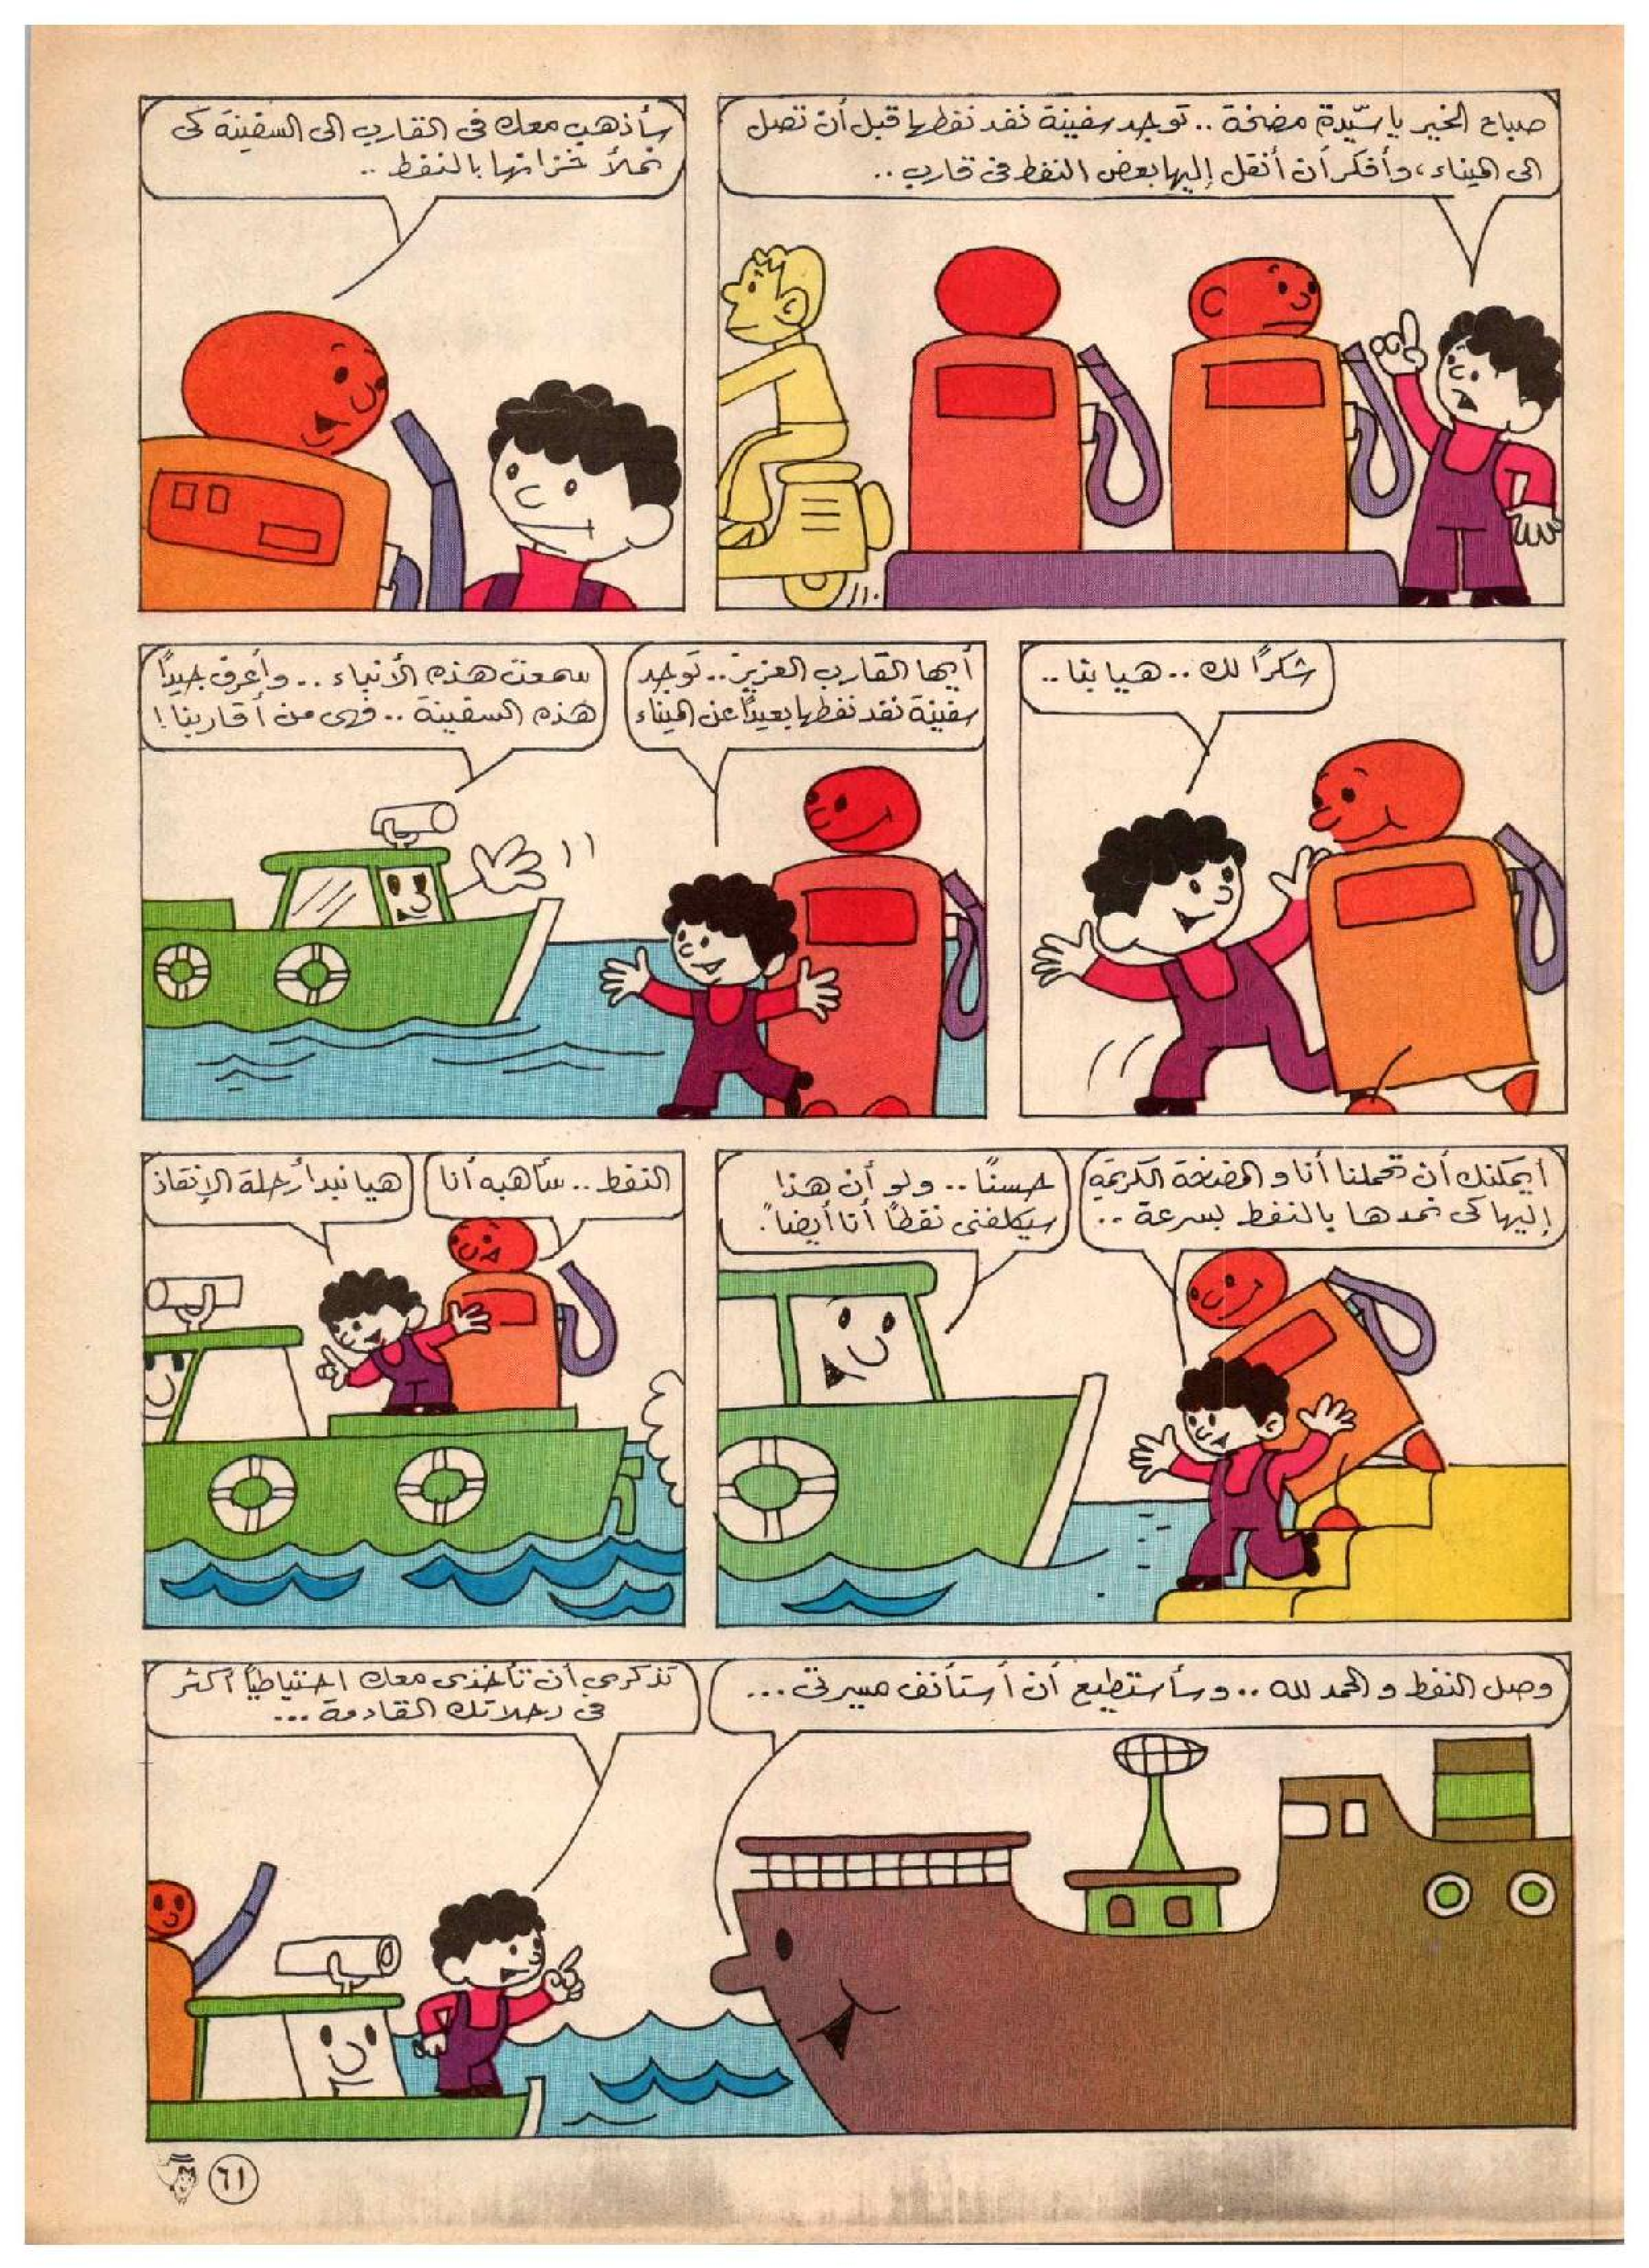 صباح الخير يا سيّدة مضخة .. توجد سفينة نفد نفطها قبل أن تصل
الى الميناء، وأفكر أن أنقل إليها بعض النفط في قارب ..
سأذهب معك في القارب الى السفينة كي
نملأ خزانها بالنفط ..
شكراً لك .. هيا بنا ..
أيها القارب العزيز .. توجد
سفينة نفد نفطها بعيداً عن الميناء
سمعت هذه الأنباء .. وأعرف جيداً
هذه السفينة .. فهي من أقاربنا!
أيمكنك أن تحملنا أنا و المضخة الكريمة
إليها كي نمدها بالنفط بسرعة ..
حسنًا .. ولو أن هذا
سيكلفني نفطاً أنا أيضاً.
النفط .. سأهبه أنا
هيا نبدأ رحلة الإنقاذ
وصل النفط و الحمد لله .. وسأستطيع أن أستأنف مسيرتي ...
تذكري أن تأخذي معك احتياطياً أكثر
في رحلاتك القادمة ...
٦١